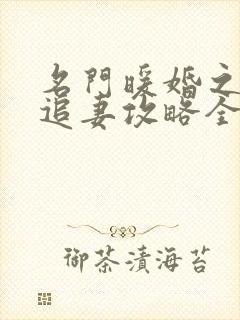 名門暖婚之
追妻攻略全
御茶漬海苔